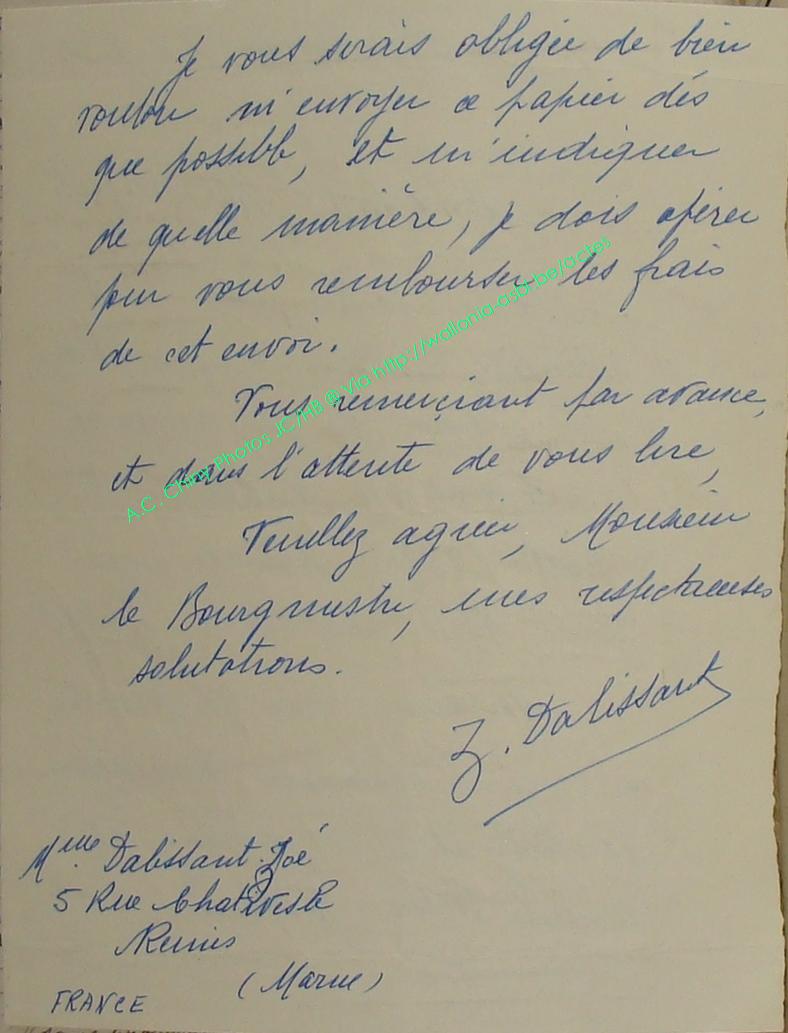 Je vous serais obligée de bien
vouloir m'envoyer ce papier dès
que possible, et m'indiquer
de quelle manière, je dois opérer
pour vous rembourser les frais
de cet envoi.
Vous remerçiant par avance,
et dans l'attente de vous lire,
Veuillez agréer, Monsieur
le Bourgmestre, mes respectueuses
salutations.
Z. Dalissant
Melle Dalissant Zoé
5 Rue
Reims
(Marne)
FRANCE
A.C. Chiny Photos JC/HB @ via http://wallonia-asbl.be/actes